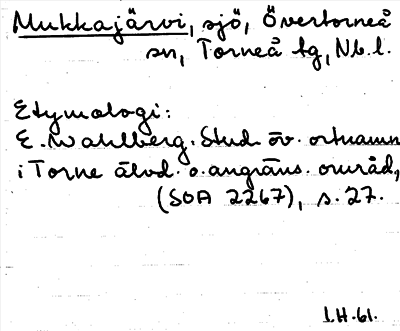 Mukkajärvi, sjö, Övertorneå
sn, Torneå tg, Nb. l.
Etymologi:
E. Wahlberg. Stud. öv. ortnamn
i Torne älvd. o. angräns. område,
(SOA 2267), s. 27.
I.H. 61.